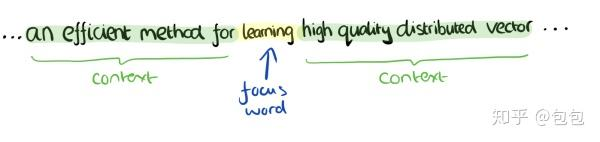 ...an efficient method for learning high quality distributed vector ...
context
context
focus
word
知乎 @包包